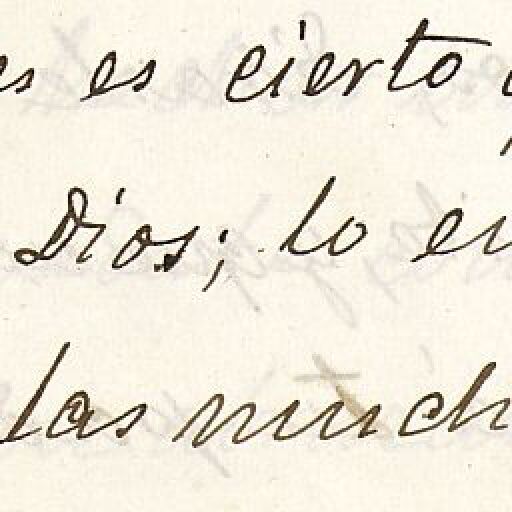 es es cierto
Dios; lo en
las much